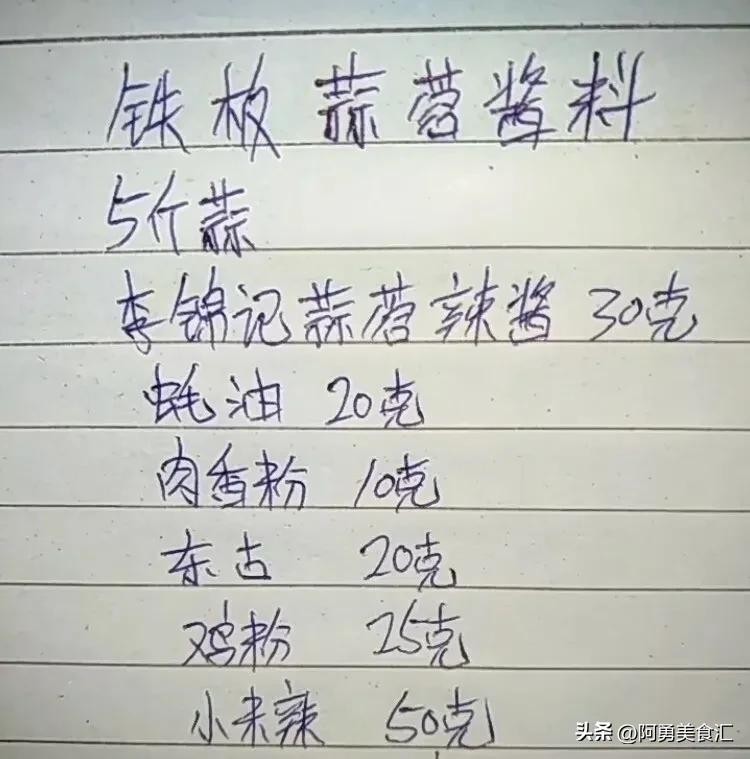 铁板蒜蓉酱料
5个蒜
李锦记蒜蓉辣酱 30克
蚝油 20克
肉香粉 10克
东古 20克
鸡粉 25克
小米辣 50克
头条 @阿勇美食汇